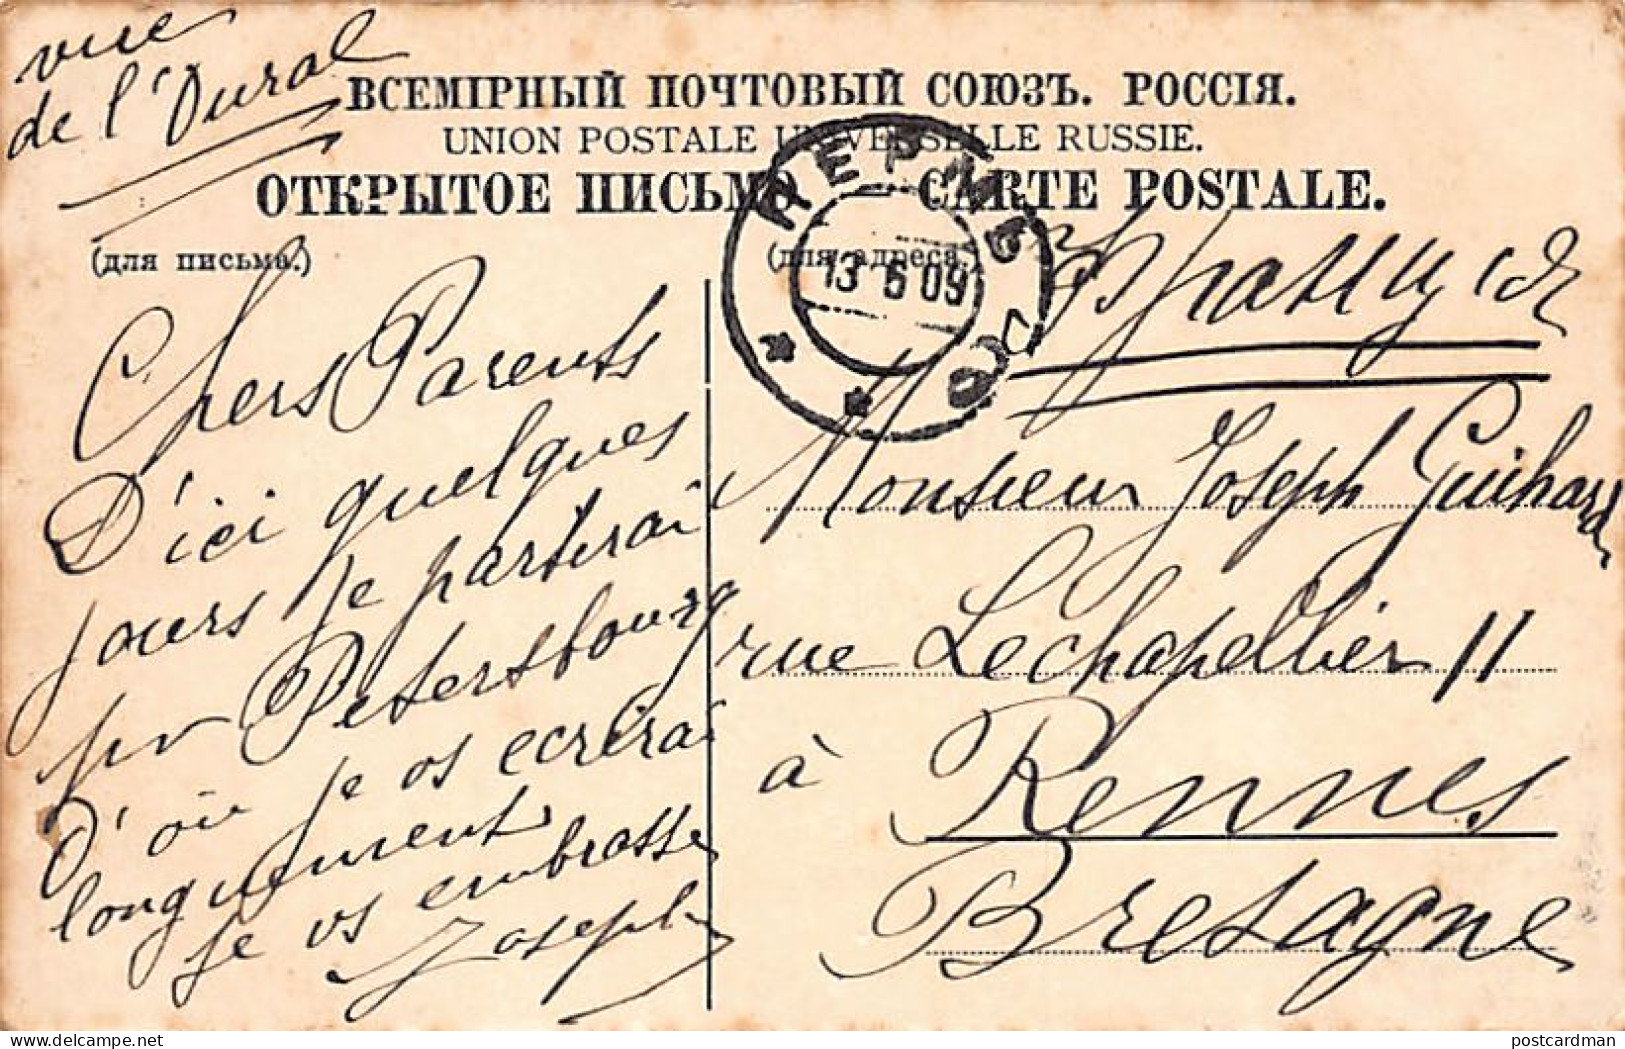 vue
de l'Oural
ВСЕМІРНЫЙ ПОЧТОВЫЙ СОЮЗЪ. РОССІЯ.
UNION POSTALE UNIVERSELLE RUSSIE.
ОТКРЫТОЕ ПИСЬМО — CARTE POSTALE.
(для письма.)
(для адреса.)
ПЕРМЬ
13 6 09
Chers Parents
D'ici quelques
jours je partirai
pr Petersbourg
D'où je vs écrirai
longuement
je vs embrasse
Joseph
Франція
Monsieur Joseph Guihard
rue Lechapellier 11
à Rennes
Bretagne
postcardman